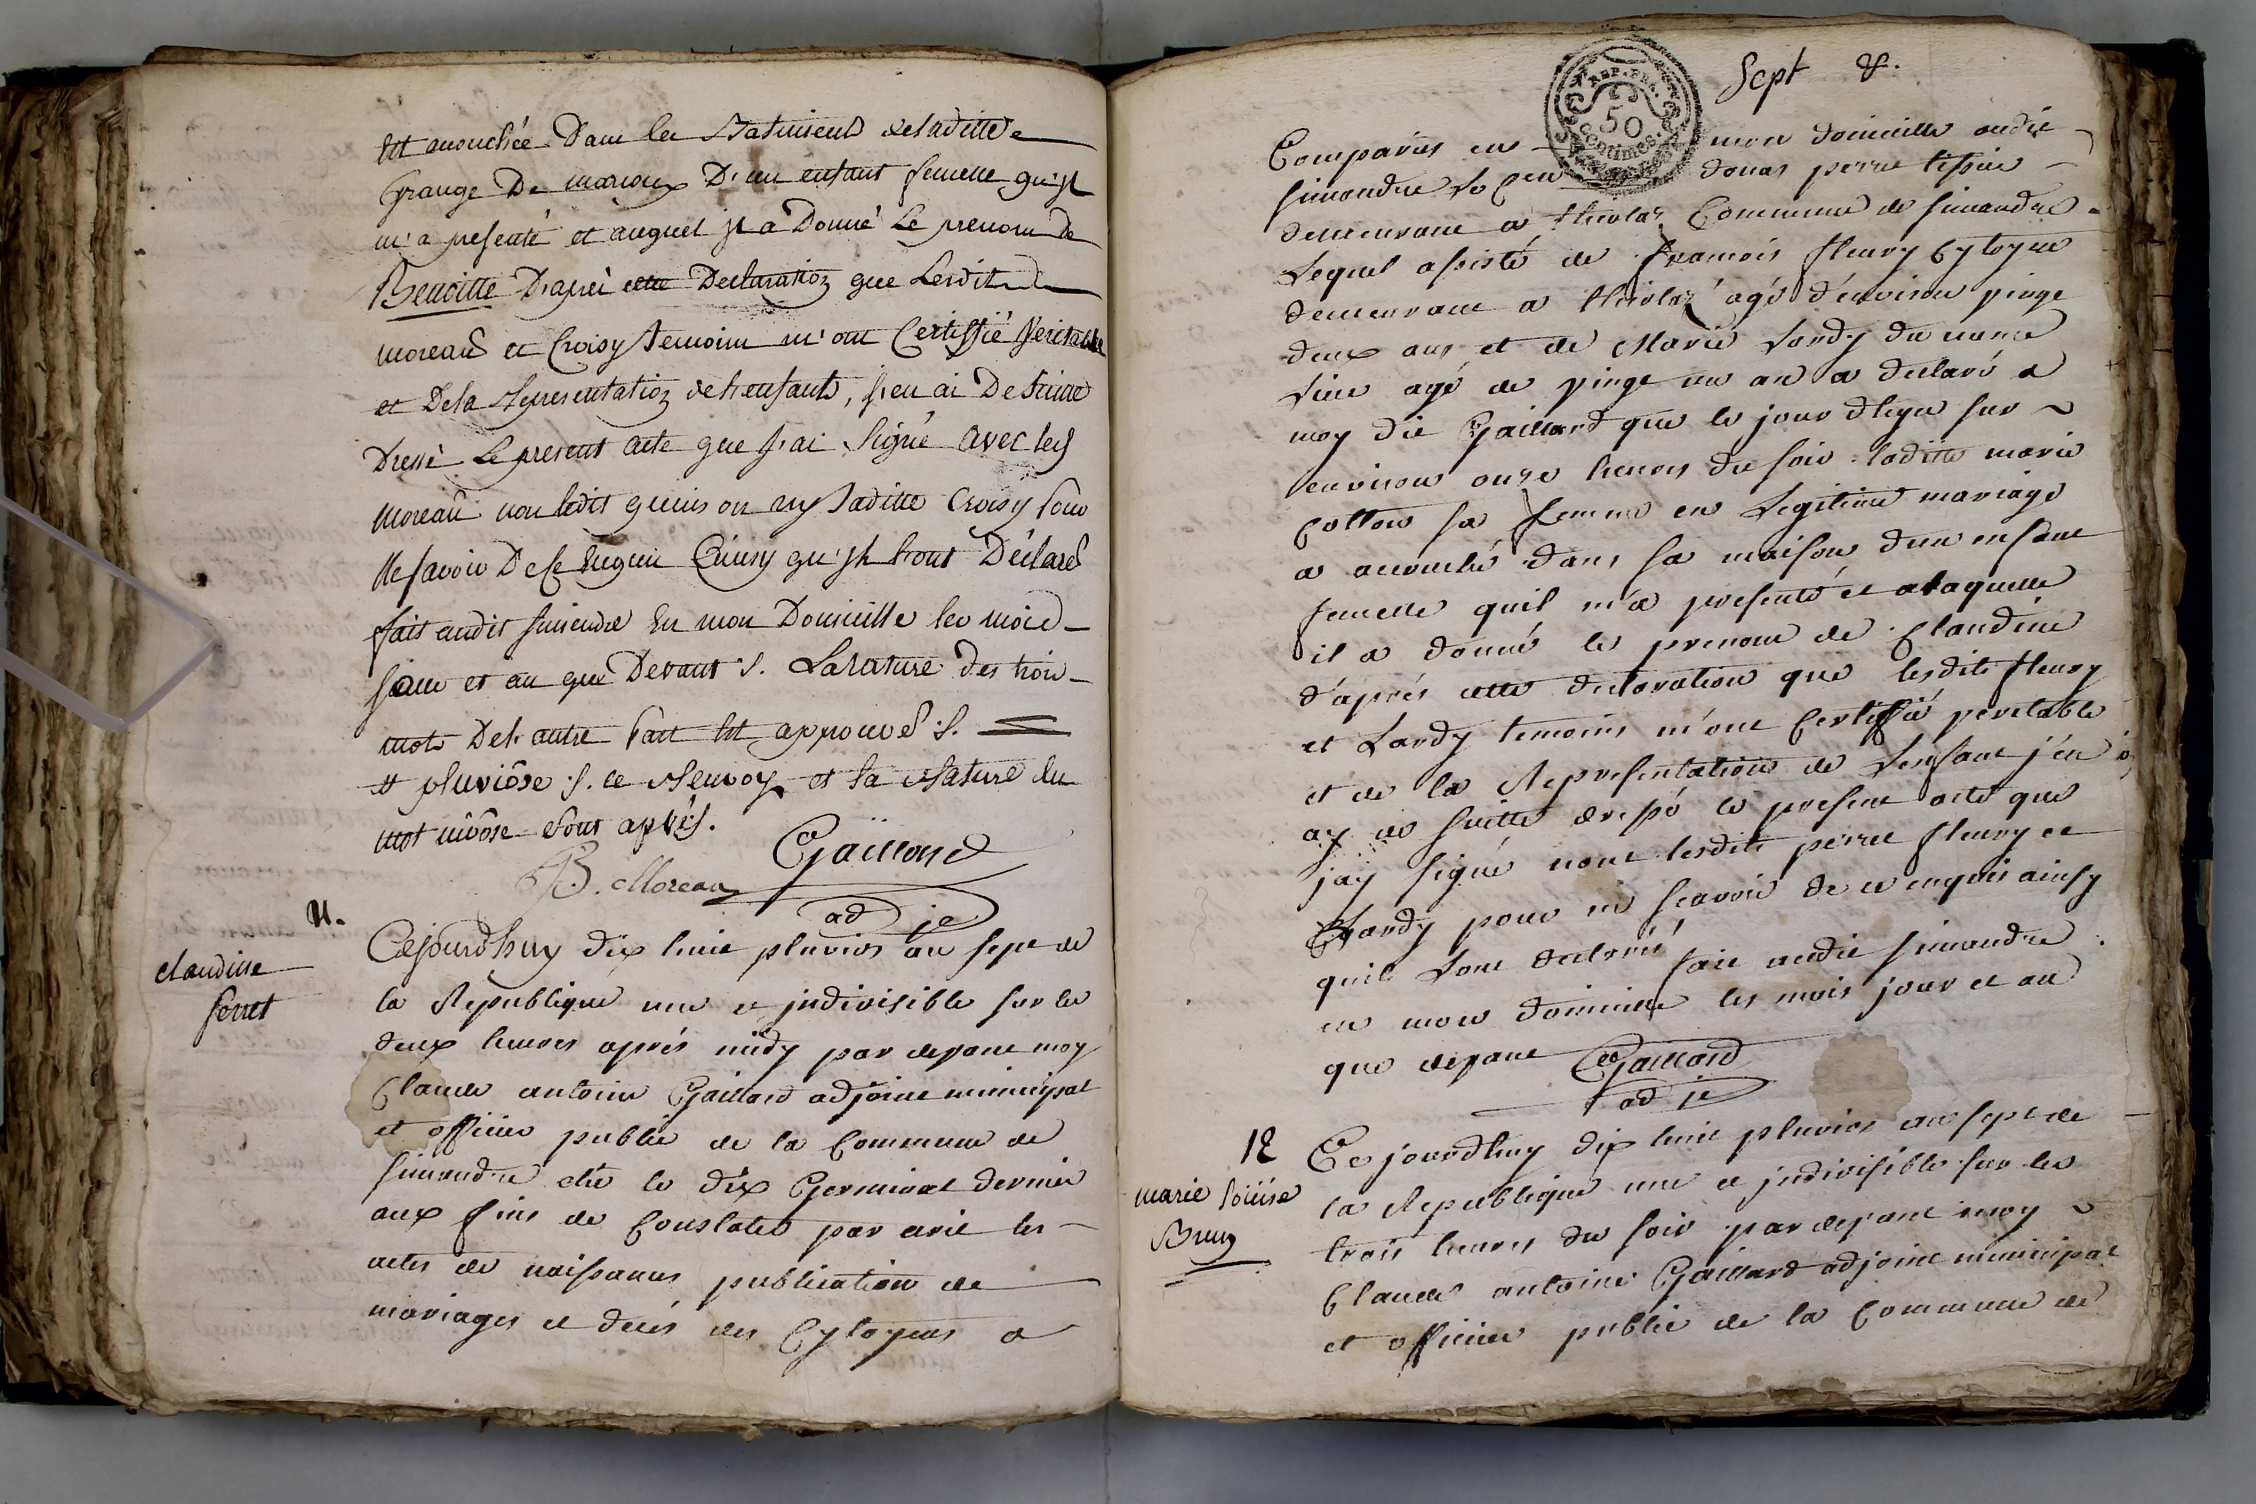 Est accouchée Dans les Batiments deladitte
Grange De marioux D'un enfant femelle qu'jl
m'a presenté et auquel jl a Donné Le prenom de
Benoitte D'aprés cette Declaration que Lesdits
moreau et Croisy temoins m'ont Certiffié veritable
et Dela Representation de L'enfant, j'en ai De Suitte
Dressé Le present acte que j'ai Signé avec led
moreau non ledit ny laditte Croisy pour
Ne savoir De ce Enquis Ainsy qu'jls L'ont Déclaré
fait audit Simandre En mon Domicille les mois
jour et an que Devant ·/. La rature des trois
mots De l'autre Part Est approuvé ·/.
# pluviôse ·/. ce Renvoy et la Rature du
mot nivôse Sont aprvés.
JB. Moreau Gaillard
ad je
11.
claudine
ferret
Cejourdhuy dix huit pluvios an sept de
la Republique une et jndivisible sur les
deux heures aprés midy par devant moy
Claude antoine Gaillard adjoint municipal
et officier public de la Commune de
Simandre elie le dix Germinal dernier
aux fins de Constater par acrie les
actes de naissances publication de
mariages et décés des Cytoyens a
Sept &.
REP. FRA.
50
centimes.
Comparus en mon domicille audit
Simandre Le Cen donat pierre
demeurant a Commune de Simandre
Lequel assisté de francois fleury Cytoyen
demeurant a agé d'environ vingt
deux ans et de Marie Lardy du meme
Lieu agé de vingt un an a declaré a
moy dit Gaillard que le jour dhyer sur
environ onze heures du soir laditte marie
Cotton sa femme en Legitime mariage
a accouché dans sa maison dun enfant
femelle quil m'a presenté et alaquelle
il a donné les prenom de Claudine
d'aprés cette declaration que lesdits fleury
et Lardy temoins m'ont Certiffié veritable
et de la Representation de Lenfant j'en
ay de suitte dressé le present acte que
jay signé nont lesdits pierre fleury et
Lardy pour ne scavoir de ce enquis ainsy
quils Lont declaré fait audit simandre
en mon domicille les mois jour et an
que devant Gaillard
ad je
12
marie loüise
Brun
Ce jourdhuy dix huit pluvios an sept de
la Republique une et jndivisible sur les
trois heures du soir par devant moy
Claude antoine Gaillard adjoint municipal
et officier public de la Commune de